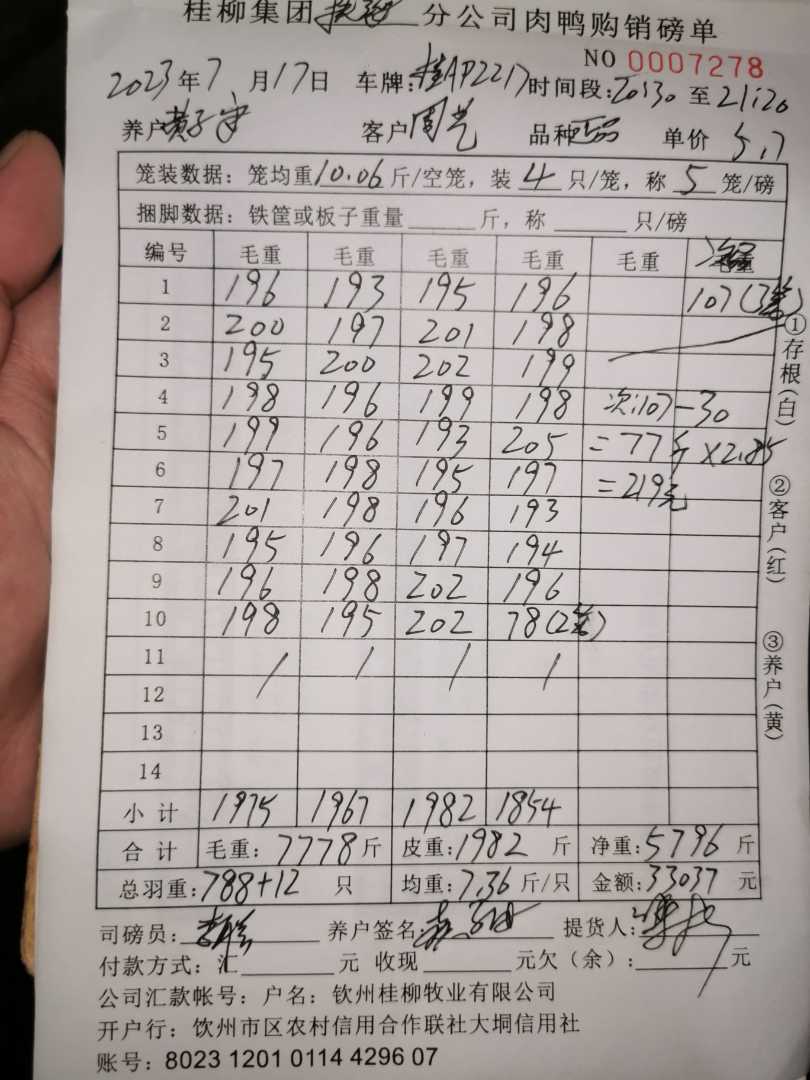 桂柳集团 分公司肉鸭购销磅单
NO 0007278
2023年7月17日 车牌:桂AP2217 时间段:20:30 至 21:20
养户 黄子 客户 周艺 品种 正品 单价 5.7
笼装数据：笼均重10.06斤/空笼，装4只/笼，称5笼/磅
捆脚数据：铁筐或板子重量______斤，称______只/磅
编号 毛重 毛重 毛重 毛重 毛重 毛重
1 196 193 195 196 107(3笼)
2 200 197 201 198
3 195 200 202 199
4 198 196 199 198 次:107-30
5 199 196 193 205 =77斤×2.85
6 197 198 195 197 =219元
7 201 198 196 193
8 195 196 197 194
9 196 198 202 196
10 198 195 202 78(2笼)
11 / / / /
12
13
14
小计 1975 1967 1982 1854
合计 毛重：7778斤 皮重:1982斤 净重:5796斤
总羽重:788+12 只 均重:7.36斤/只 金额:33037元
司磅员: 养户签名: 提货人:
付款方式：汇______元 收现______元欠（余）:______元
公司汇款帐号：户名：钦州桂柳牧业有限公司
开户行：饮州市区农村信用合作联社大垌信用社
账号：8023 1201 0114 4296 07
①存根(白)
②客户(红)
③养户(黄)